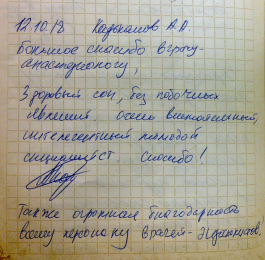 12.10.18 Кадоканов А.А.
Большое спасибо врачу-
анастезиологу,
Здоровый сон, без побочных
явлений очень внимательный,
интелегентный молодой
специалист, спасибо!
Также огромная благодарность
всему персоналу врачей-